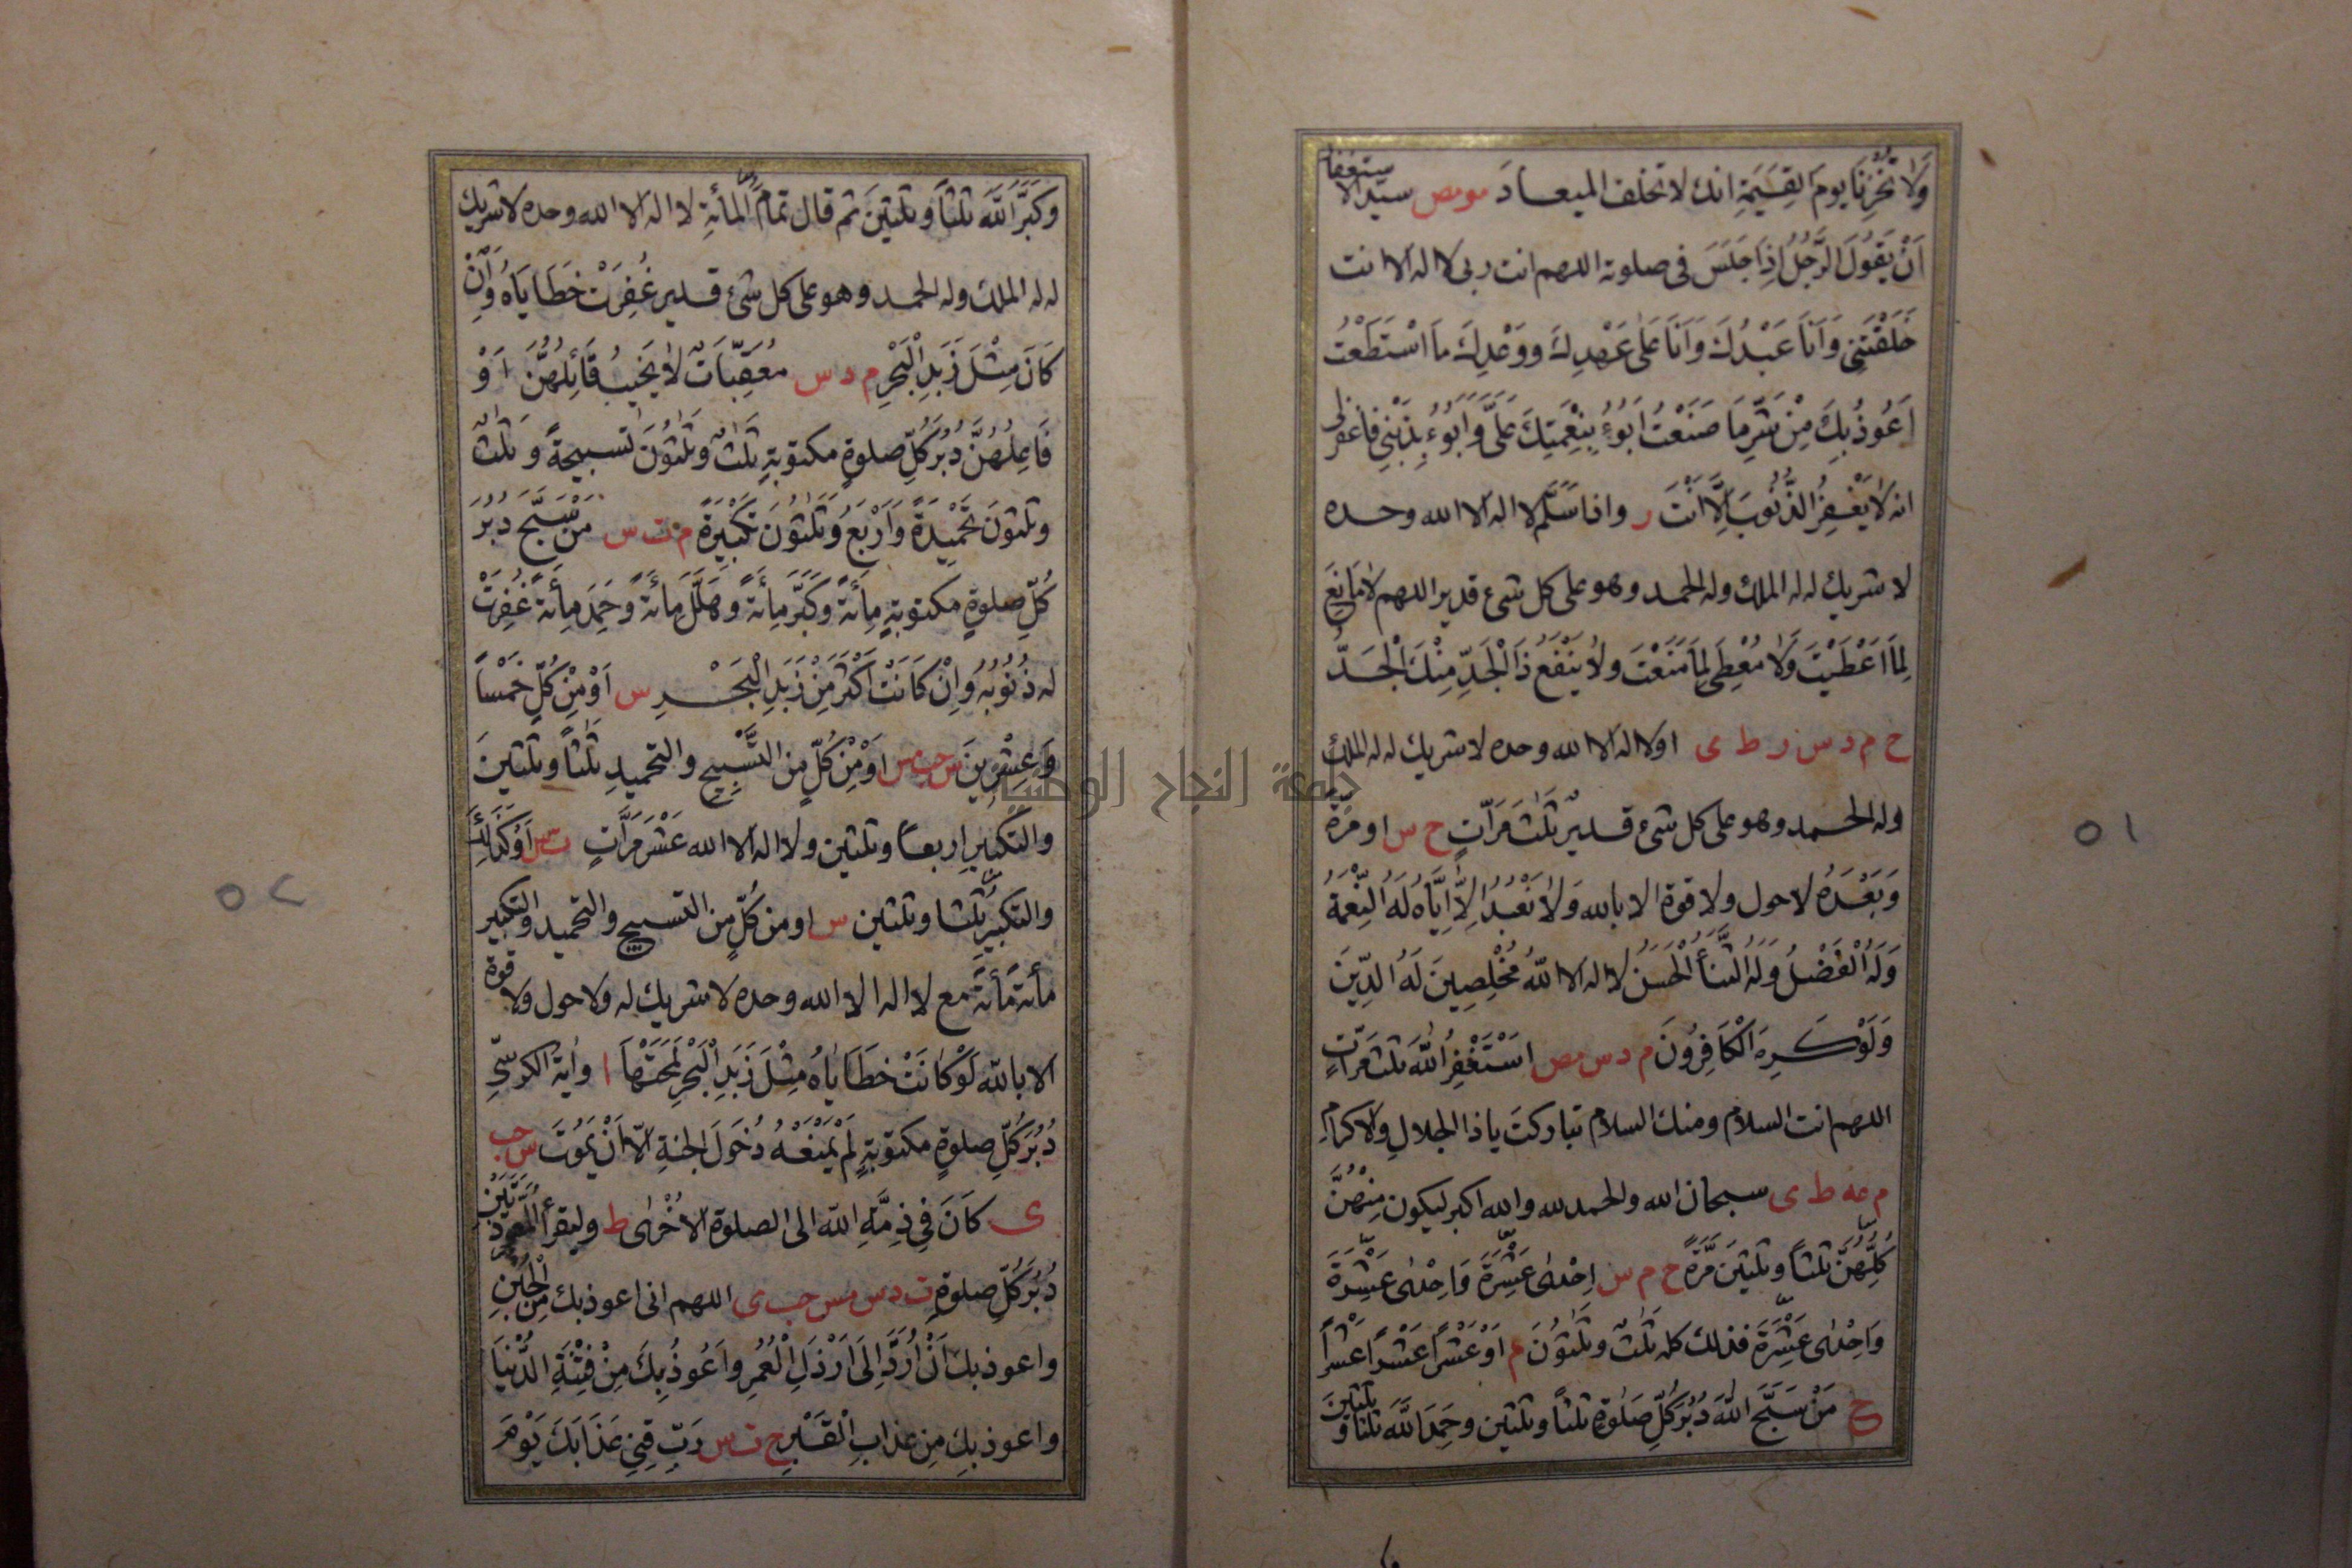 وَلَا تُخْزِنَا يَومَ القِيٰمَةِ انك لا تخلف الميعادَ مو مص سيّد الاستغفار
اَنْ يَقُولَ الرَّجُلُ اِذَا جَلَسَ فى صلوته اللهم انت ربى لا اله الا انت
خَلَقْتَنِى وَاَنَا عَبْدُكَ وَاَنَا عَلٰى عَهْدِكَ وَوَعْدِكَ مَا اسْتَطَعْتُ
اَعُوذُ بِكَ مِنْ شَرِّ مَا صَنَعْتُ اَبُوءُ بِنِعْمَتِكَ عَلَىَّ وَاَبُوءُ بِذَنْبِى فاغفرلى
انه لَا يَغْفِرُ الذُّنُوبَ اِلَّا اَنْتَ ر واذا سَلَّمَ لا اله الا الله وحده
لا شريك له له الملك وله الحمد وهو على كل شئ قدير اللهم لَا مَانِعَ
لِمَا اَعْطَيْتَ وَلَا مُعْطِىَ لِمَا مَنَعْتَ وَلَا يَنْفَعُ ذَا الْجَدِّ مِنْكَ الْجَدُّ
خ م د س ر ط ى او لا اله الا الله وحده لا شريك له له الملك
وله الحمد وهو على كل شئ قدير ثَلٰثَ مَرَّاتٍ خ س او مَرَّةً
وَبَعْدَهُ لا حول ولا قوة الا بالله وَلَا نَعْبُدُ اِلَّا اِيَّاهُ لَهُ النِّعْمَةُ
وَلَهُ الْفَضْلُ وَلَهُ الثَّنَاءُ الْحَسَنُ لا اله الا اللّٰهُ مُخْلِصِينَ لَهُ الدِّينَ
وَلَوْ كَرِهَ الْكَافِرُونَ م د س مص اَسْتَغْفِرُ اللّٰهَ ثلث مَرَّاتٍ
اللهم انت السلام ومنك السلام تباركتَ يا ذا الجلالِ والاكرامِ
م عه ط ى سبحان الله والحمد لله والله اكبر ليكون مِنْهُنَّ
كُلِّهِنَّ ثلثاً وثلثين مَرَّةً خ م س اِحْدٰى عَشْرَةَ وَاِحْدٰى عَشْرَةَ
وَاِحْدٰى عَشْرَةَ فذلك كله ثلٰثٌ وثلٰثُونَ م اَوْ عَشْراً عَشْراً عَشْراً
خ مَنْ سَبَّحَ اللّٰهَ دُبُرَ كُلِّ صَلٰوةٍ ثلثاً وثلثين وحَمِدَ اللّٰهَ ثلثا وثلثين
٥١
وكَبَّرَ اللّٰهَ ثلثاً وثلثينَ ثم قال تَمَامَ المأئةِ لا اله الا الله وحده لا شريك
له له الملك وله الحمد وهو على كل شئ قدير غُفِرَتْ خَطَايَاهُ وَاِنْ
كَانَ مِثْلَ زَبَدِ الْبَحْرِ م د س مُعَقِّبَاتٌ لَا يَخِيبُ قَائِلُهُنَّ اَوْ
فَاعِلُهُنَّ دُبُرَ كُلِّ صلوةٍ مكتوبةٍ ثلٰثٌ وثلٰثُونَ تسبيحةً وثلٰثٌ
وثلثونَ تَحْمِيدَةً وَاَرْبَعٌ وَثَلٰثُونَ تَكْبِيرَةً م ت س مَنْ سَبَّحَ دُبُرَ
كُلِّ صلوةٍ مكتوبةٍ مِأَئةً وكَبَّرَ مِأئةً وهَلَّلَ مِائةً وحَمِدَ مِأئةً غُفِرَتْ
له ذُنُوبُهُ وَاِنْ كَانَتْ اَكْثَرَ مِنْ زَبَدِ الْبَحْرِ س اَوْ مِنْ كُلٍّ خَمْساً
وَعِشْرِينَ س حب مس اَوْ مِنْ كُلٍّ مِنَ التَّسْبِيحِ والتحميدِ ثلٰثاً وثلثينَ
والتكبيرِ اربعاً وثلثين ولا اله الا الله عَشْرَ مَرَّاتٍ ت س اَوْ كَذٰلِكَ
والتكبيرُ ثلثا وثلثين س او من كُلٍّ من التسبيح والتحميد والتكبير
مأئة مأئةً مع لا اله الا الله وحده لا شريك له ولا حول ولا قوة
الا بالله لَوْ كَانَتْ خَطَايَاهُ مِثْلَ زَبَدِ الْبَحْرِ لَمَحَتْهَا ا واٰية الكرسِىِّ
دُبُرَ كُلِّ صلوةٍ مكتوبةٍ لَمْ يَمْنَعْهُ دُخُولَ الجنةِ اِلَّا اَنْ يَمُوتَ س حب
ى كَانَ فِى ذِمَّةِ اللّٰه الى الصلوة الاُخْرٰى ط وليقرأ المُعَوِّذَتَيْنِ
دُبُرَ كُلِّ صلوةٍ ت د س مس حب ى اللهم انى اعوذ بك مِنَ الْجُبْنِ
واعوذ بك اَنْ اُرَدَّ اِلَى اَرْذَلِ الْعُمُرِ وَاَعُوذُ بِكَ مِنْ فِتْنَةِ الدُّنْيَا
واعوذ بِكَ مِن عذابِ الْقَبْرِ خ ت س رَبِّ قِنِى عَذَابَكَ يَوْمَ
٥٢
جامعة النجاح الوطنية